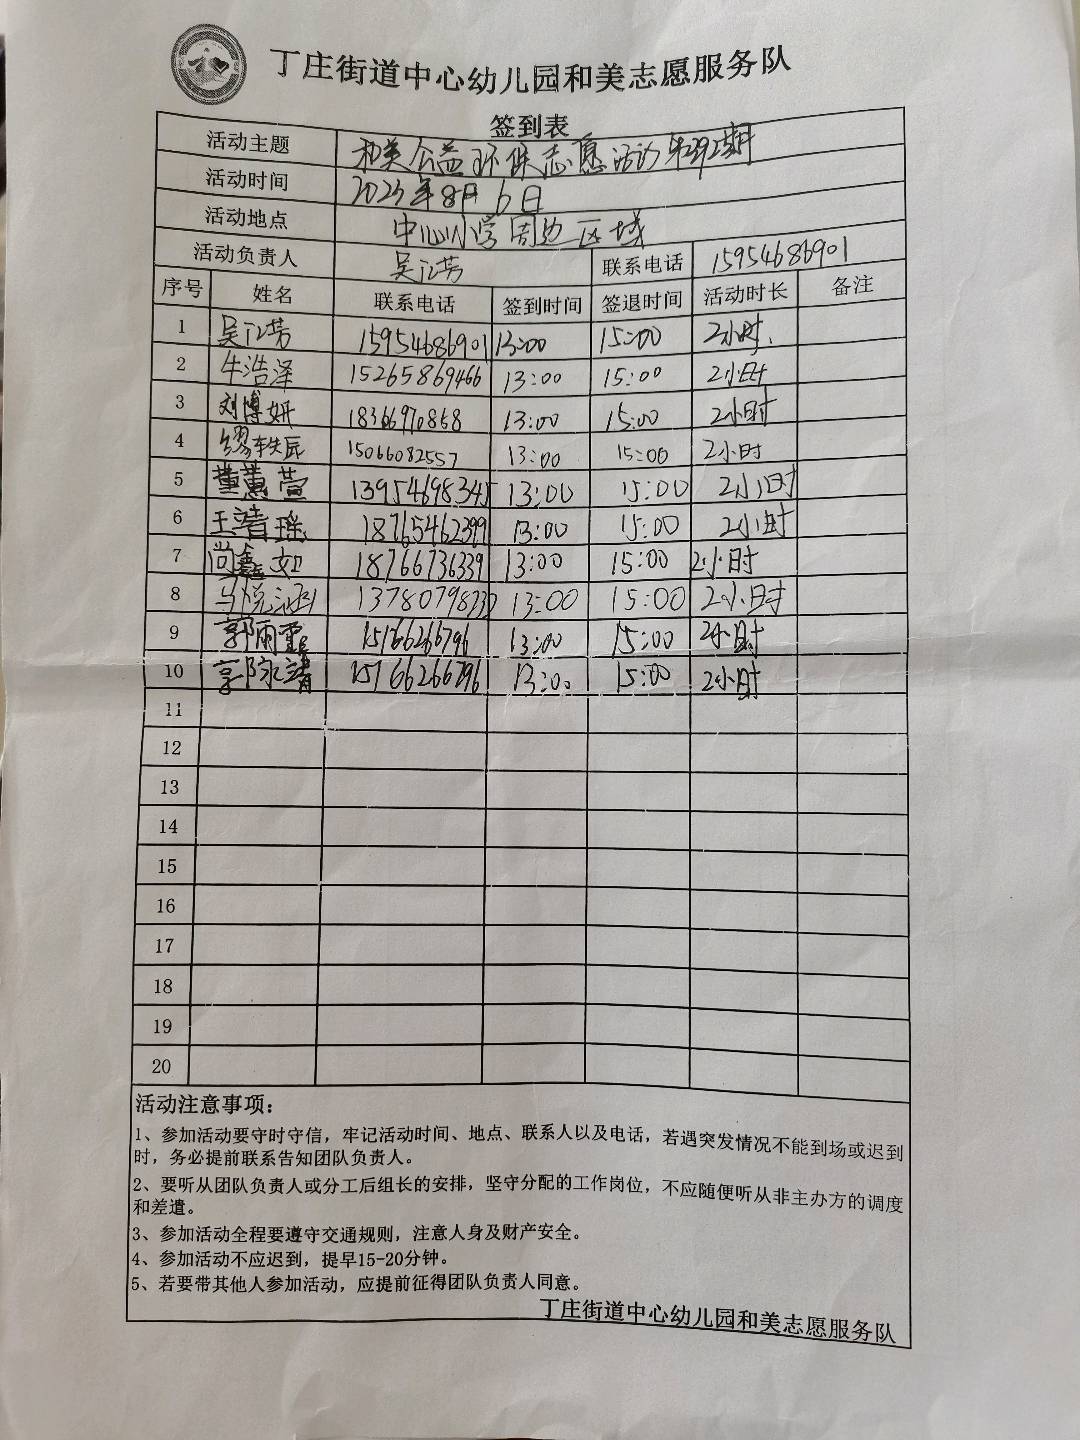 丁庄街道中心幼儿园和美志愿服务队
签到表
活动主题 和美公益环保志愿活动
活动时间 2023年8月6日
活动地点 中心小学周边区域
活动负责人 吴江芳 联系电话 15954686901
序号 姓名 联系电话 签到时间 签退时间 活动时长 备注
1 吴江芳 15954686901 13:00 15:00 2小时
2 牛浩泽 15265869466 13:00 15:00 2小时
3 刘博妍 18366970868 13:00 15:00 2小时
4 15066082557 13:00 15:00 2小时
5 董蕙萱 13954698345 13:00 15:00 2小时
6 王清瑶 18765462399 13:00 15:00 2小时
7 尚鑫如 18766736339 13:00 15:00 2小时
8 马悦涵 13:00 15:00 2小时
9 郭雨霏 15166266796 13:00 15:00 2小时
10 郭咏靖 15166266796 13:00 15:00 2小时
11
12
13
14
15
16
17
18
19
20
活动注意事项：
1、参加活动要守时守信，牢记活动时间、地点、联系人以及电话，若遇突发情况不能到场或迟到
时，务必提前联系告知团队负责人。
2、要听从团队负责人或分工后组长的安排，坚守分配的工作岗位，不应随便听从非主办方的调度
和差遣。
3、参加活动全程要遵守交通规则，注意人身及财产安全。
4、参加活动不应迟到，提早15-20分钟。
5、若要带其他人参加活动，应提前征得团队负责人同意。
丁庄街道中心幼儿园和美志愿服务队